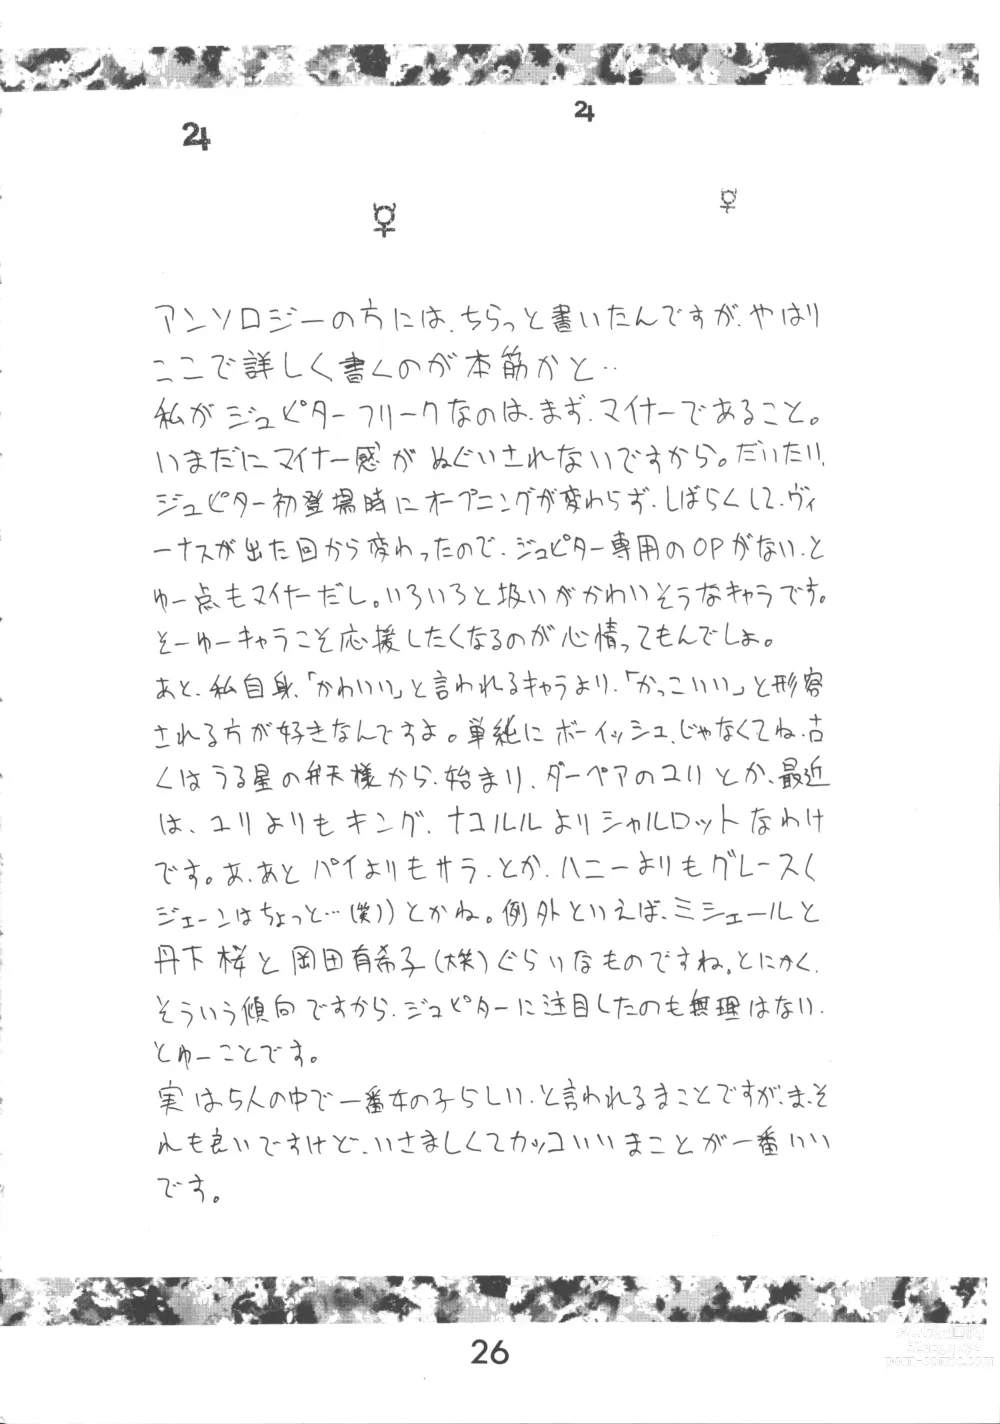 アンソロジーの方には、ちらっと書いたんですが、やはり
ここで詳しく書くのが本筋かと‥
私がジュピターフリークなのは、まず、マイナーであること。
いまだにマイナー感がぬぐいされないですから。だいたい、
ジュピター初登場時にオープニングが変わらず、しばらくして、ヴィ
ーナスが出た回から変わったので、ジュピター専用のOPがない、と
ゆー点もマイナーだし。いろいろと扱いがかわいそうなキャラです。
そーゆーキャラこそ応援したくなるのが心情ってもんでしょ。
あと、私自身、「かわいい」と言われるキャラより、「かっこいい」と形容
される方が好きなんですよ。単純にボーイッシュ、じゃなくてね、古
くはうる星の弁天様から、始まり、ダーペアのユリとか、最近
は、ユリよりもキング、ナコルルよりシャルロットなわけ
です。あ、あとパイよりもサラ、とか、ハニーよりもグレース(
ジェーンはちょっと…(笑))とかね。例外といえば、ミシェールと
丹下桜と岡田有希子(大笑)ぐらいなものですね。とにかく、
そういう傾向ですから、ジュピターに注目したのも無理はない、
とゆーことです。
実は5人の中で一番女の子らしい、と言われるまことですが、ま、そ
れも良いですけど、いさましくてカッコいいまことが一番いい
です。
26